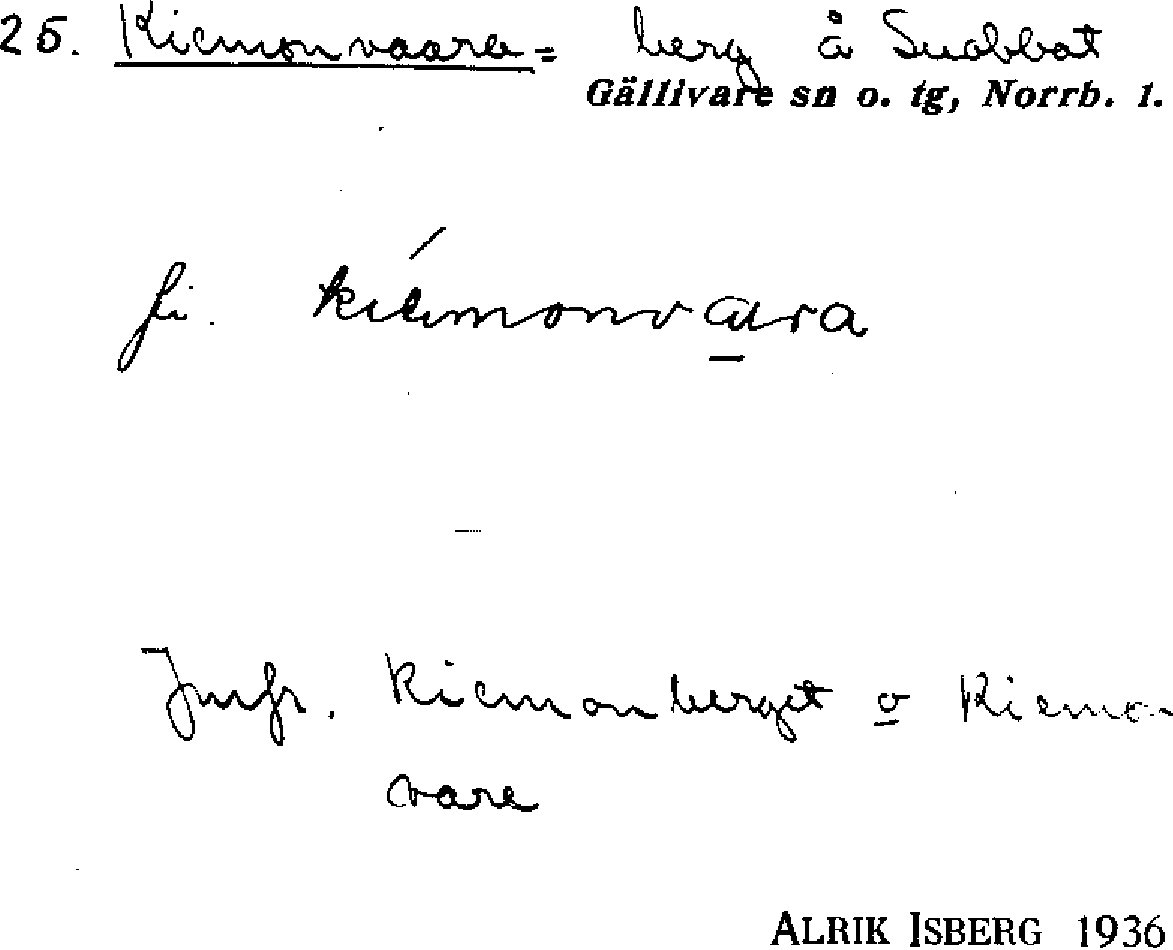 25. Kiemonvaara = berg å Suobbat
Gällivare sn o. tg, Norrb. l.
fi. kiémonvaara
Jmfr. Kiemonberget o Kiemo-
vare
ALRIK ISBERG 1936